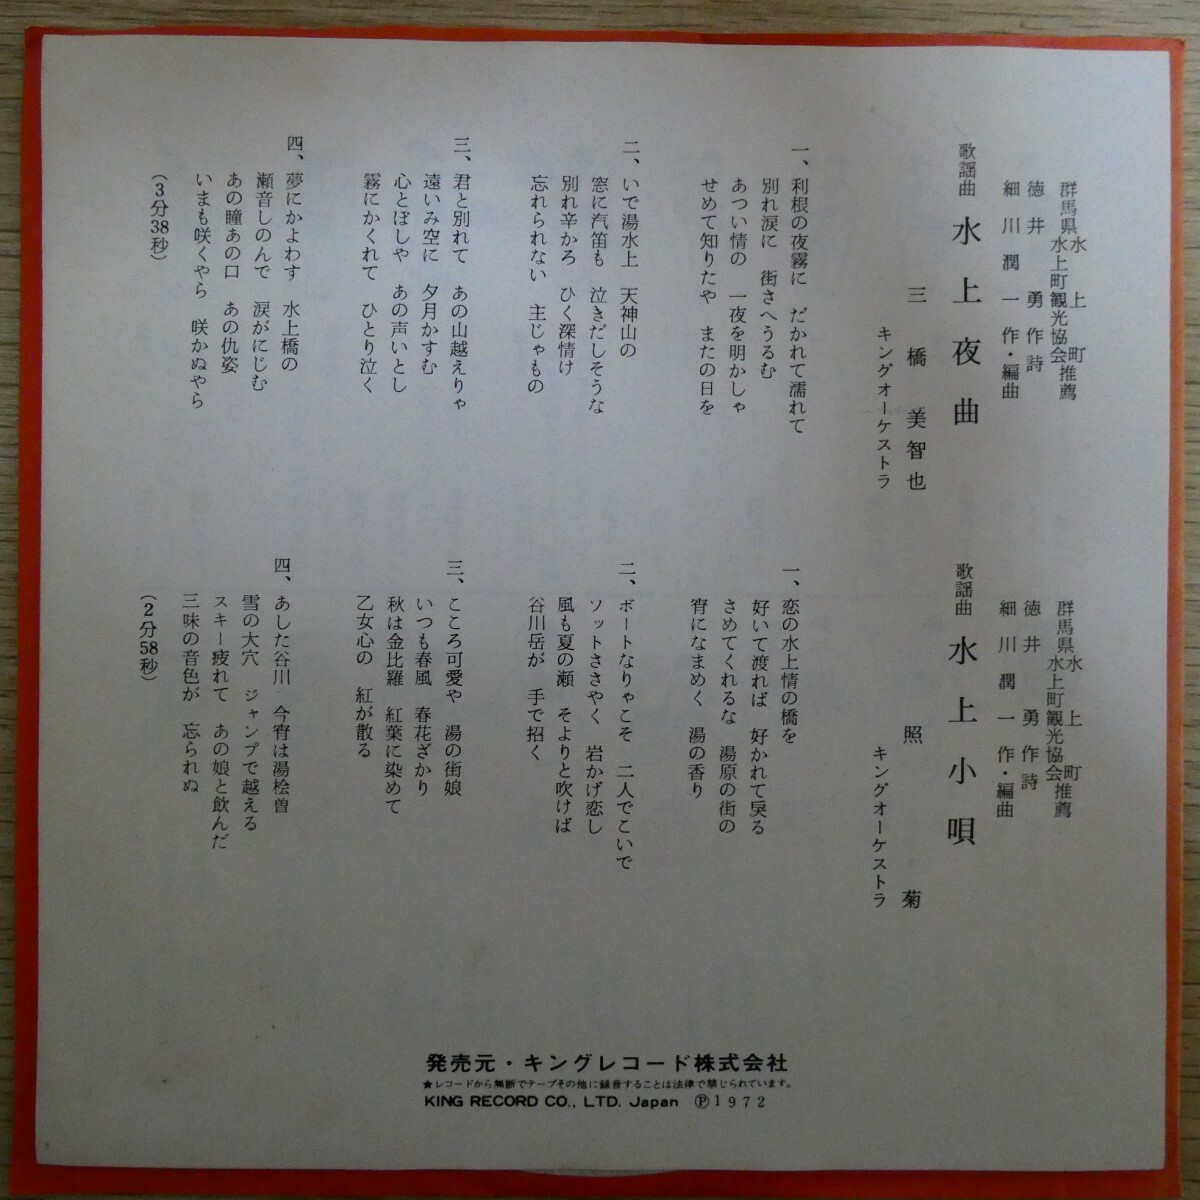 群馬県水上町
水上町観光協会推薦
徳井勇作詩
細川潤一作・編曲
歌謡曲 水上夜曲
三橋美智也
キングオーケストラ
一、利根の夜霧に だかれて濡れて
別れ涙に 街さへうるむ
あつい情の 一夜を明かしゃ
せめて知りたや またの日を
二、いで湯水上 天神山の
窓に汽笛も 泣きだしそうな
別れ辛かろ ひく深情け
忘れられない 主じゃもの
三、君と別れて あの山越えりゃ
遠いみ空に 夕月かすむ
心とぼしや あの声いとし
霧にかくれて ひとり泣く
四、夢にかよわす 水上橋の
瀬音しのんで 涙がにじむ
あの瞳あの口 あの仇姿
いまも咲くやら 咲かぬやら
（3分38秒）
群馬県水上町
水上町観光協会推薦
徳井勇作詩
細川潤一作・編曲
歌謡曲 水上小唄
照菊
キングオーケストラ
一、恋の水上情の橋を
好いて渡れば 好かれて戻る
さめてくれるな 湯原の街の
宵になまめく 湯の香り
二、ボートなりゃこそ 二人でこいで
ソットささやく 岩かげ恋し
風も夏の瀬 そよりと吹けば
谷川岳が 手で招く
三、こころ可愛や 湯の街娘
いつも春風 春花ざかり
秋は金比羅 紅葉に染めて
乙女心の 紅が散る
四、あした谷川 今宵は湯桧曽
雪の大穴 ジャンプで越える
スキー疲れて あの娘と飲んだ
三味の音色が 忘れられぬ
（2分58秒）
発売元・キングレコード株式会社
★レコードから無断でテープその他に録音することは法律で禁じられています。
KING RECORD CO., LTD. Japan Ⓟ1972